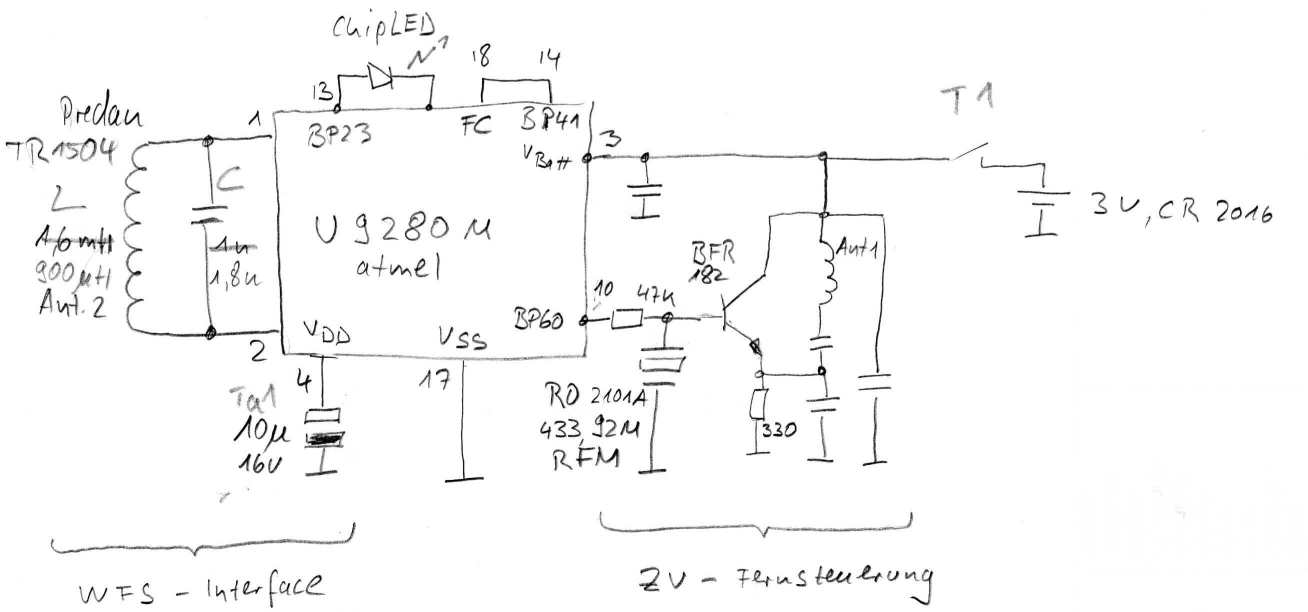 ChipLED
18
14
13
Predan
1
BP23
FC
BP41
T1
TR1504
VBatt
3
L
C
1,6 mH
1n
3V, CR 2016
900µH
1,8n
U9280M
BFR
182
Ant1
Ant.2
atmel
BP60
10
47k
2
VDD
VSS
4
17
Ta1
10µ
16V
RO 2101A
433,92M
RFM
330
WFS - Interface
ZV - Fernsteuerung